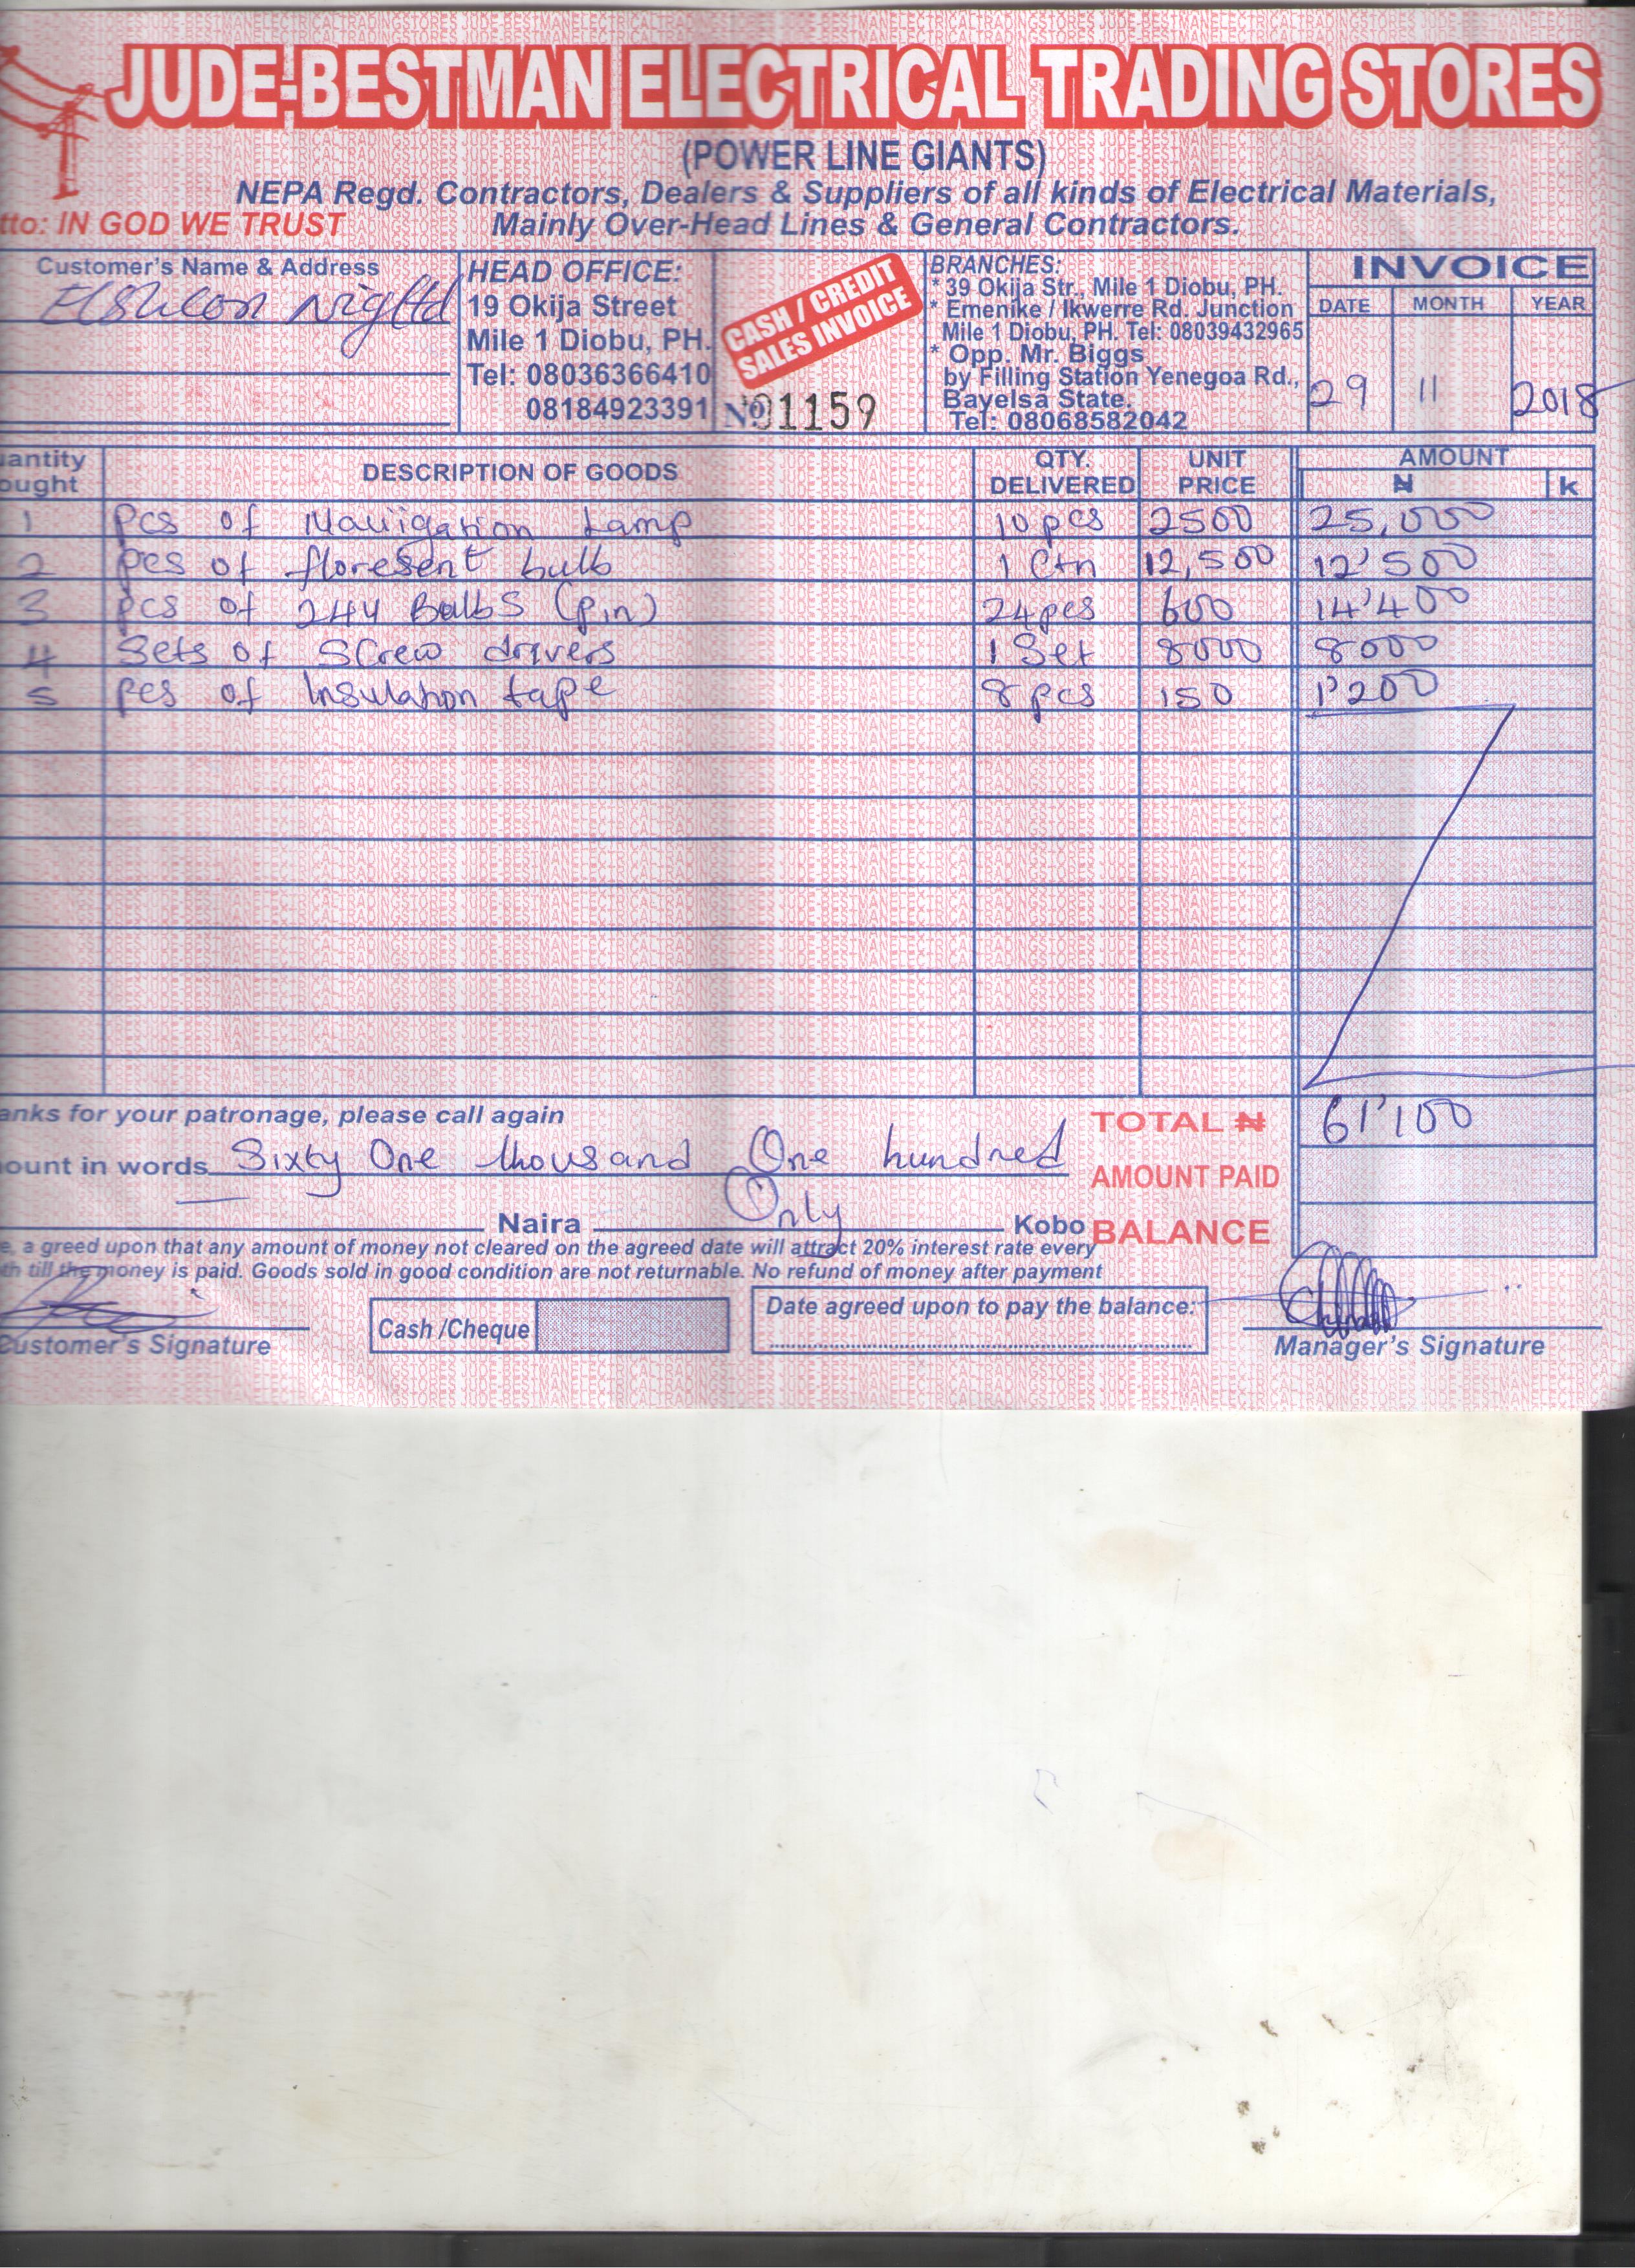 JUDE-BESTMAN ELECTRICAL TRADING STORES
(POWER LINE GIANTS)
NEPA Regd. Contractors, Dealers & Suppliers of all kinds of Electrical Materials,
tto: IN GOD WE TRUST Mainly Over-Head Lines & General Contractors.
Customer's Name & Address
Nig ltd
HEAD OFFICE:
19 Okija Street
Mile 1 Diobu, PH.
Tel: 08036366410
08184923391
CASH / CREDIT
SALES INVOICE
Nº 01159
BRANCHES:
* 39 Okija Str., Mile 1 Diobu, PH.
* Emenike / Ikwerre Rd. Junction
Mile 1 Diobu, PH. Tel: 08039432965
* Opp. Mr. Biggs
by Filling Station Yenegoa Rd.,
Bayelsa State.
Tel: 08068582042
INVOICE
DATE MONTH YEAR
29 11 2018
antity ought DESCRIPTION OF GOODS QTY. DELIVERED UNIT PRICE AMOUNT ₦ k
1 pcs of Navigation Lamp 10 pcs 2500 25,000
2 pcs of floresent bulb 1 Ctn 12,500 12'500
3 pcs of 24V Bulbs (pin) 24pcs 600 14'400
4 Sets of Screw drivers 1 Set 8000 8000
5 pcs of Insulation tape 8 pcs 150 1'200
anks for your patronage, please call again
TOTAL ₦ 61'100
ount in words Sixty One thousand One hundred
AMOUNT PAID
Only
Naira Kobo
BALANCE
e, a greed upon that any amount of money not cleared on the agreed date will attract 20% interest rate every
th till the money is paid. Goods sold in good condition are not returnable. No refund of money after payment
Customer's Signature
Cash /Cheque
Date agreed upon to pay the balance:
Manager's Signature